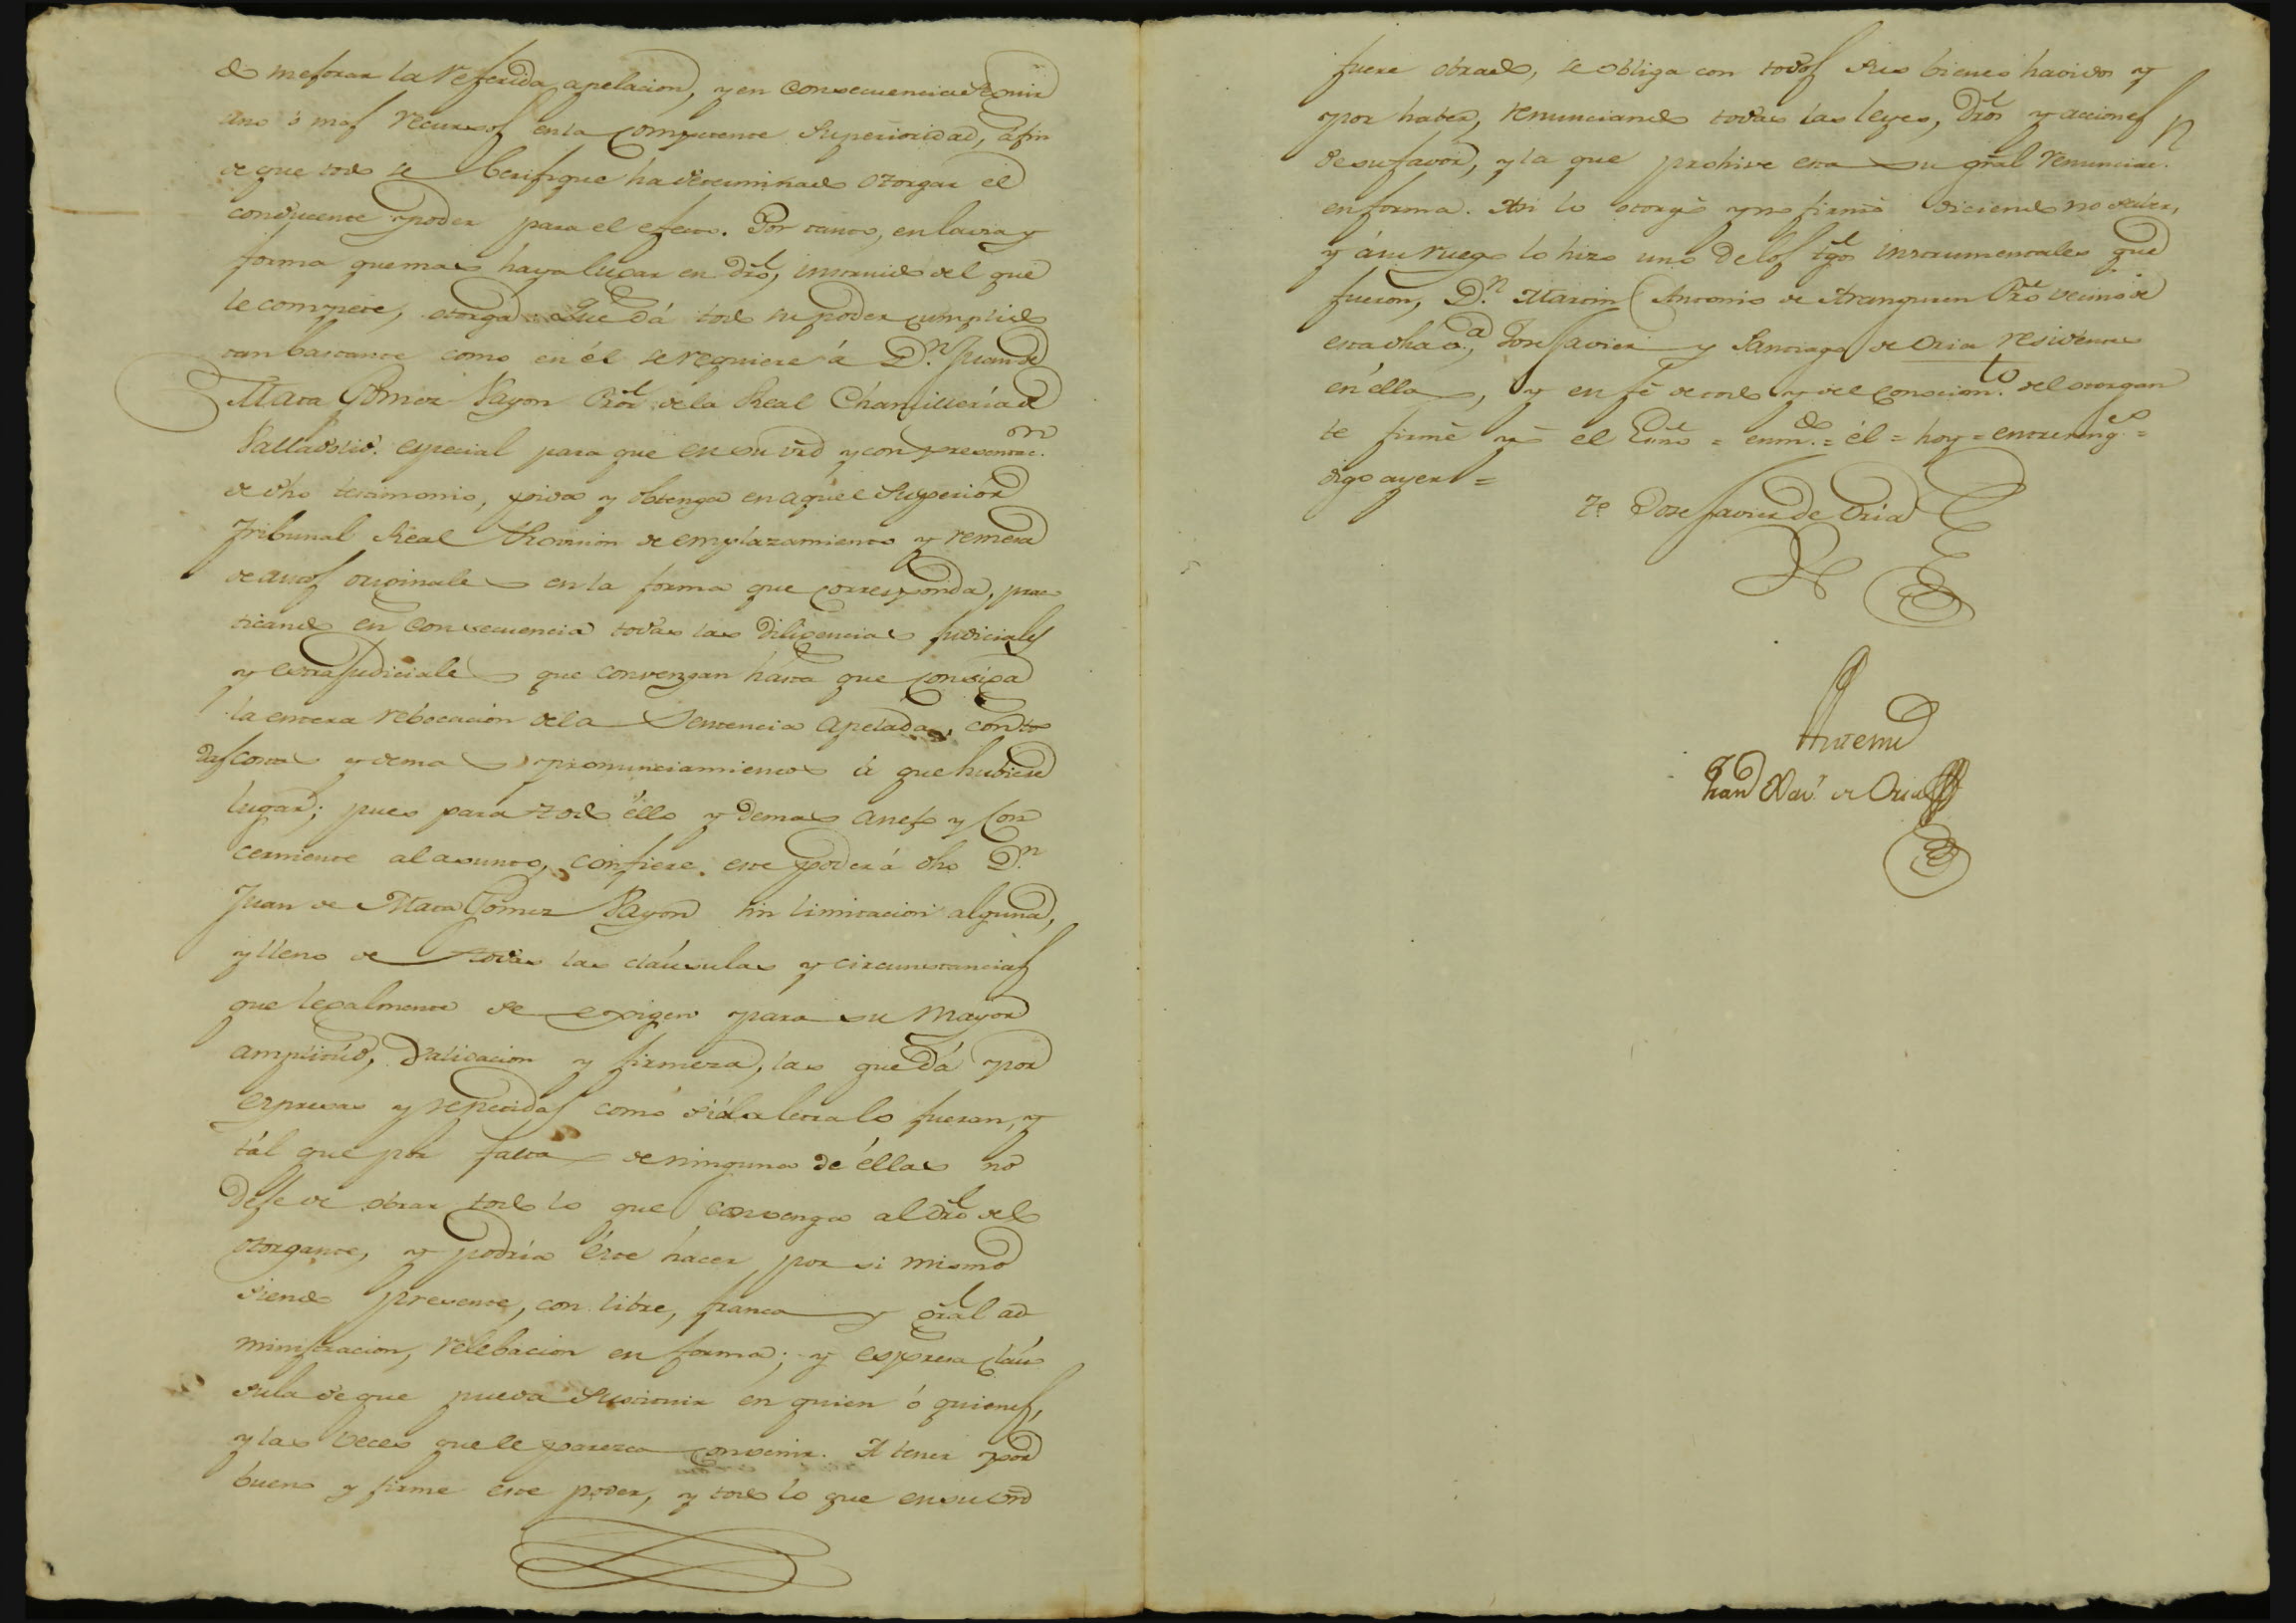 de mejorar la referida apelacion, y en consecuencia seguir
uno ó mas recursos en la competente Superioridad, á fin
de que todo se berifique ha determinado otorgar el
conducente poder para el efecto. Por tanto, en la via y
forma que mas haya lugar en dro, instruido del que
le compete, otorga: Que dá todo su poder cumplido
tan bastante como en él se requiere á D.n Juan de
Mata Gomez Rayon Pror. de la Real Chancilleria de
Valladolid. especial para que en su vrd y con presentac.n
de dho testimonio, pida y obtenga en aquel Superiór
Tribunal Real Provision de emplazamiento y remesa
de autos originales en la forma que corresponda, prac
ticando en consecuencia todas las diligencias judiciales
y extrajudiciales que convengan hasta que consiga
la entera rebocacion de la Sentencia apelada, con to
das costas y demas pronunciamientos á que hubiere
lugar; pues para todo éllo y demas anejo y con
cerniente al asunto, confiere este poder á dho D.n
Juan de Mata Gomez Rayon sin limitacion alguna,
y lleno de todas las cláusulas y circunstancias
que legalmente se exigen para su mayor
amplitúd, validacion y firmeza, las que dá por
expresas y repetidas como si á la letra lo fueran, y
tál que por falta de ninguna de éllas no
deje de obrar todo lo que convenga al dro del
otorgante, y podria éste hacer por si mismo
siendo presente, con libre, franca y gral ad
ministracion, relebacion en forma; y expresa cláu
sula de que pueda sustituir en quien ó quienes,
y las veces que le parezca convenir. A tener por
bueno y firme este poder, y todo lo que en su vrd
fuere obrado, se obliga con todos sus bienes havidos y
por haber, renunciando todas las leyes, dros y acciones
de su favór, y la que prohive esta su gral renunciac.n
en forma. Asi lo otorgó y no firmó diciendo no saber,
y á su ruego lo hizo uno de los tgos instrumentales que
fueron, D.n Martin Antonio de Aranguren Pro vecino de
esta dha v.a, Jose Javier y Santiago de Oria residentes
en élla, y en fé de todo y del conocim.to del otorgan
te firmé yo el Esno = enm.do = él = hoy = entrereng.s =
digo ayer =
To Jose Javier de Oria
Antemi
Juan Xav.r de Oria